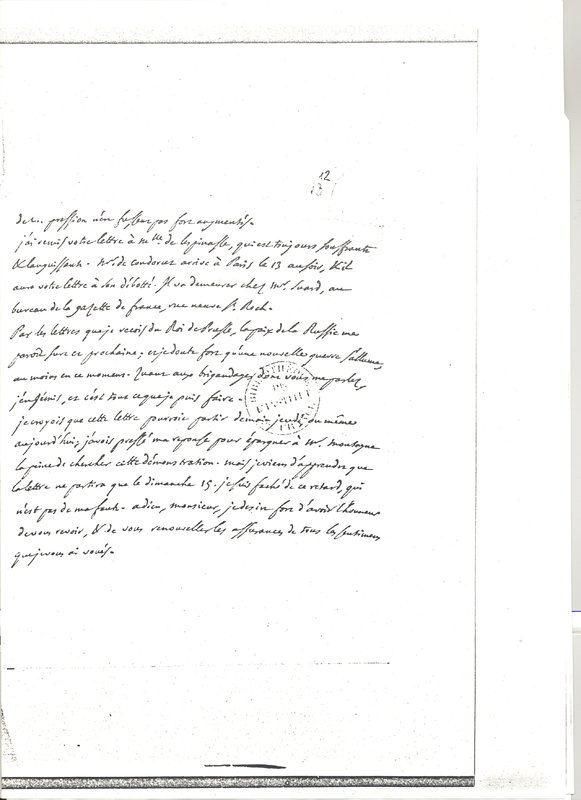 12
13
de la pression n'en fussent pas fort augmentés.
j'ai remis votre lettre à Mlle de Lespinasse, qui est toujours souffrante
& languissante. Mr. de Condorcet arrive à Paris le 13 au soir, & il
aura votre lettre à son débotté. Il va demeurer chez Mr. Suard, au
bureau de la gazette de france, rue neuve St. Roch.
Par les lettres que je reçois du Roi de Prusse, la paix de la Russie me
paroît sure et prochaine; et je doute fort qu'une nouvelle guerre s'allume,
au moins en ce moment. Quant aux brigandages dont vous me parlez,
j'en gémis, et c'est tout ce que je puis faire.
je croyois que cette lettre pourroit partir demain jeudi ou même
aujourd'hui; j'avois pressé ma reponse pour épargner à Mr. montagne
la peine de chercher cette démonstration. mais je viens d'apprendre que
la lettre ne partira que le dimanche 15. je suis faché de ce retard, qui
n'est pas de ma faute. adieu, monsieur, je desire fort d'avoir l'honneur
de vous revoir, & de vous renouveller les assurances de tous les sentimens
que je vous ai voués.
BIBLIOTHEQUE
DE
L'INSTITUT